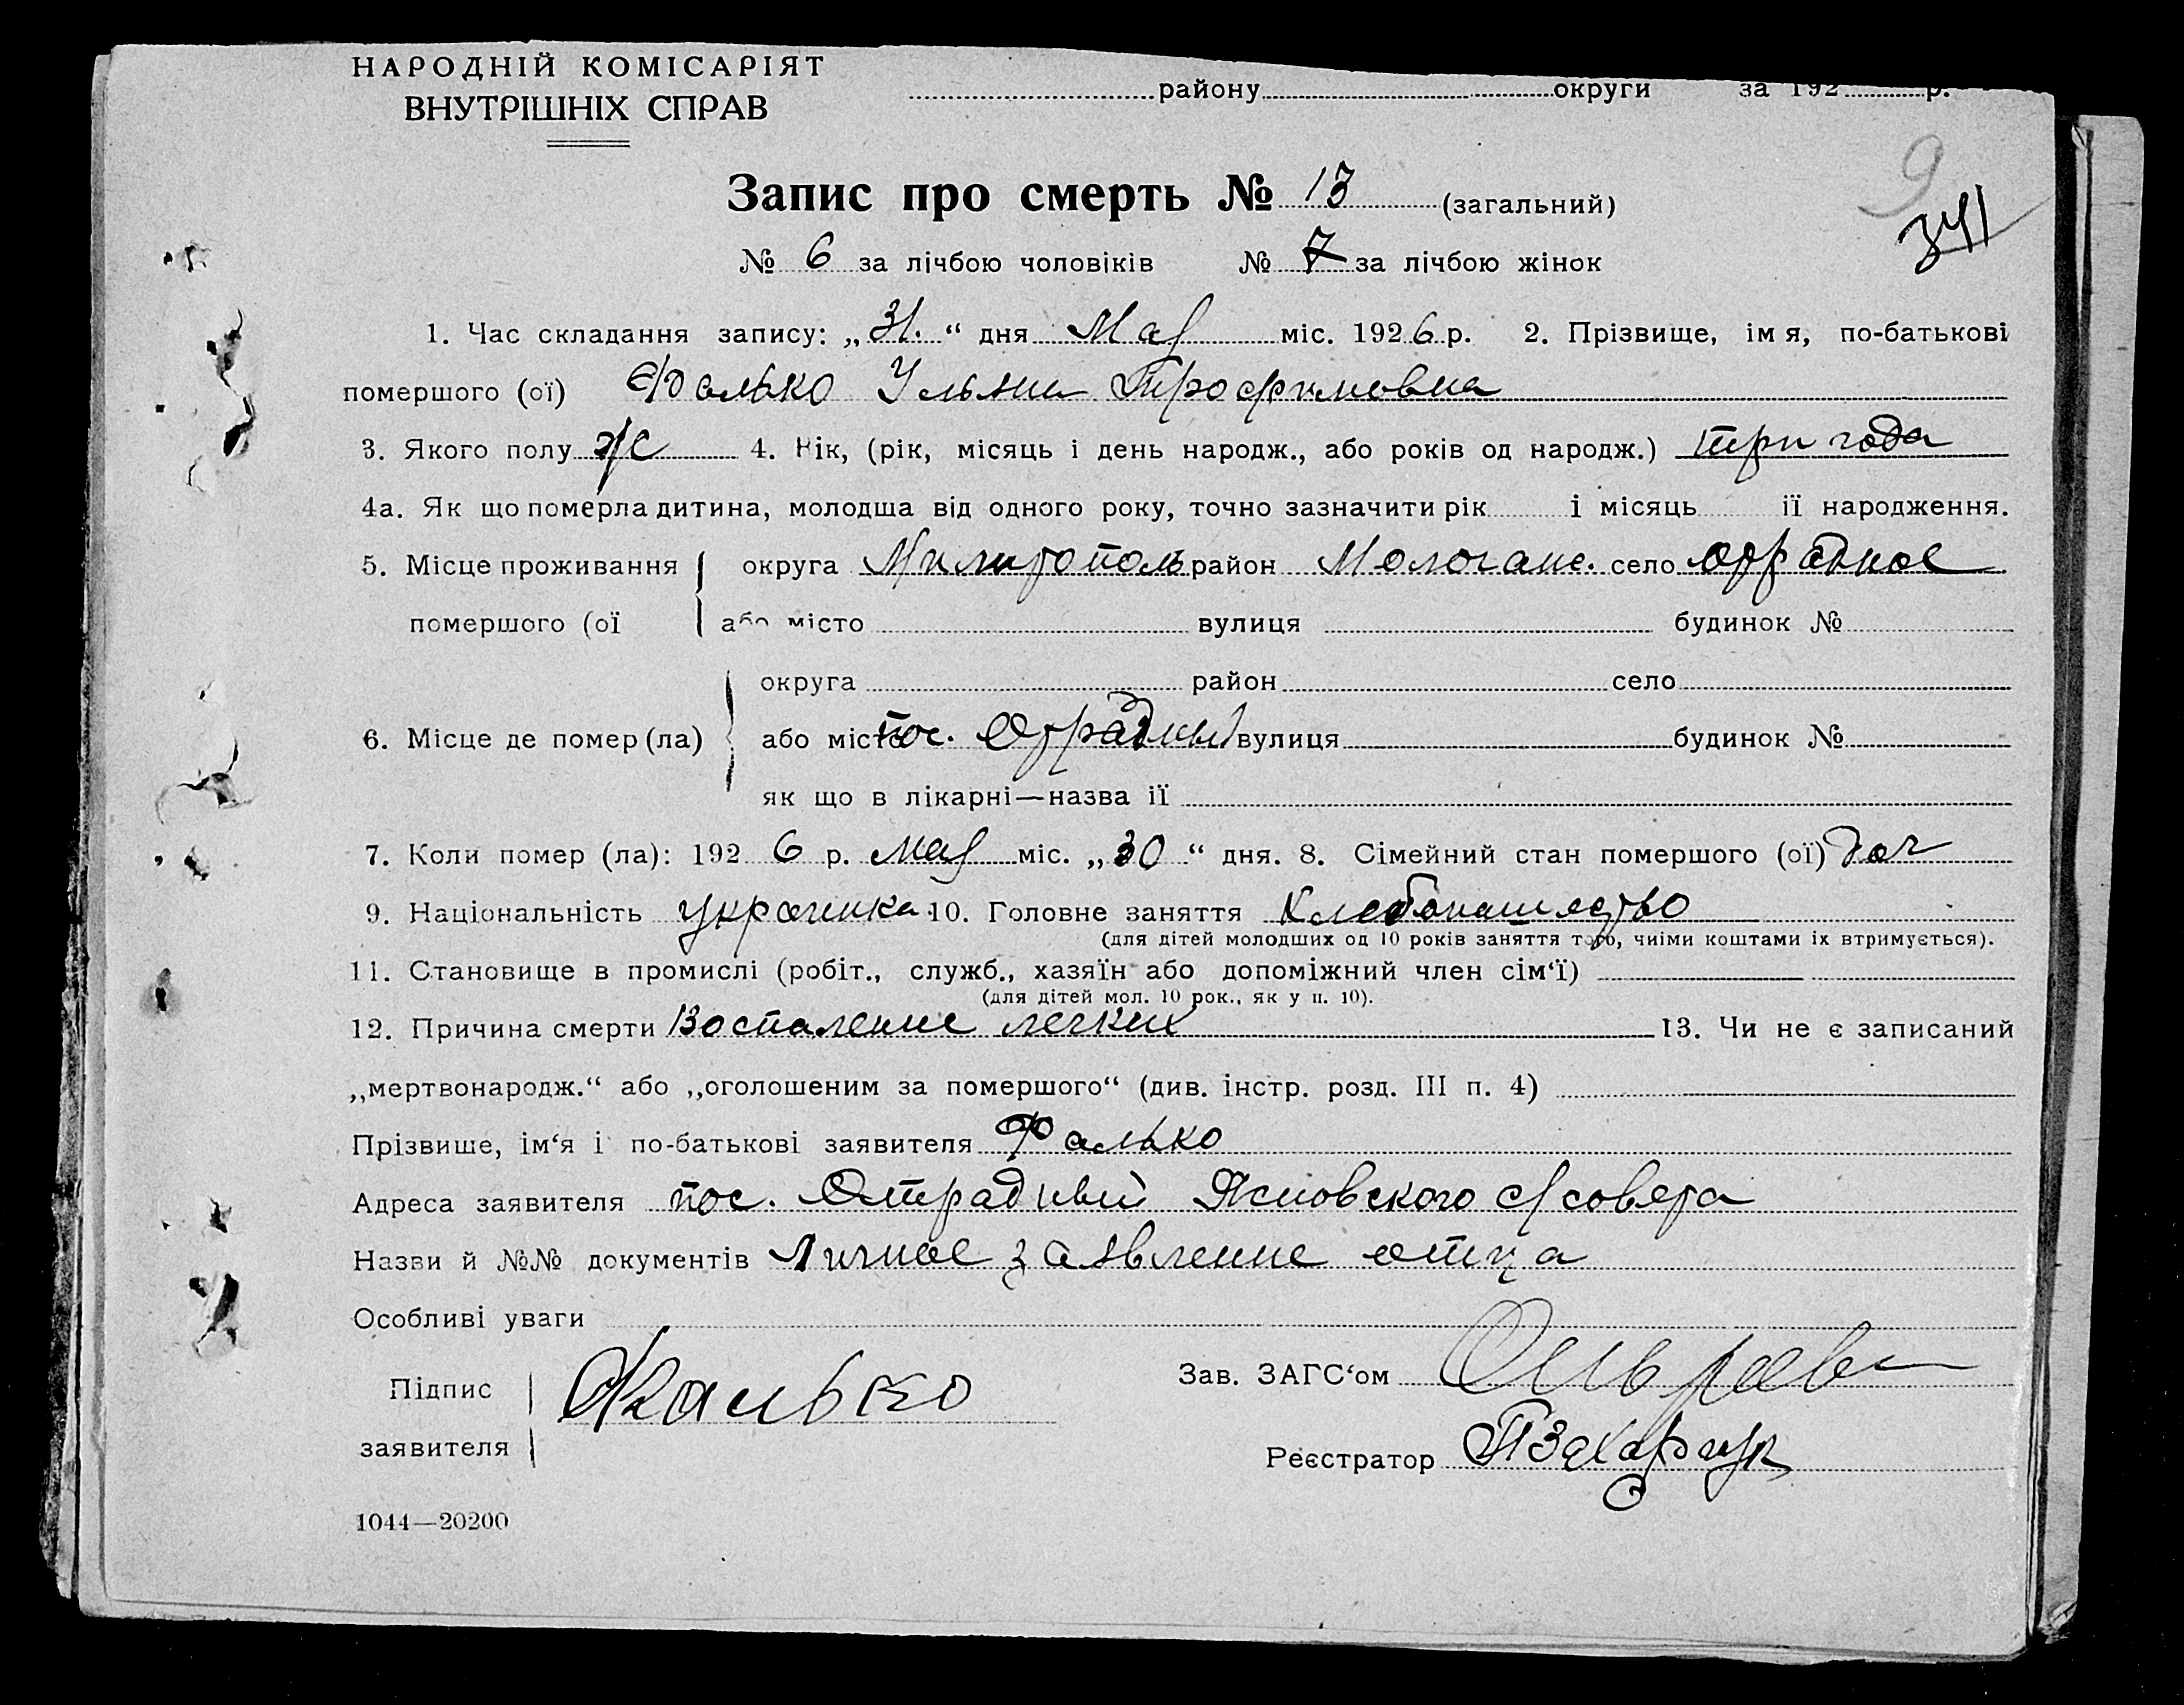 НАРОДНІЙ КОМІСАРІЯТ
ВНУТРІШНІХ СПРАВ
району округи за 192 р.
9
341
Запис про смерть № 13 (загальний)
№ 6 за лічбою чоловіків № 7 за лічбою жінок
1. Час складання запису: „31.“ дня Мая міс. 1926 р. 2. Прізвище, імя, по-батькові
помершого (ої) Фалько Ульяна Трофимовна
3. Якого полу ж 4. Вік, (рік, місяць і день народж., або років од народж.) три года
4а. Як що померла дитина, молодша від одного року, точно зазначити рік і місяць ії народження.
5. Місце проживання округа Милитополь район Молочанс. село Отрадное
помершого (ої або місто вулиця будинок №
округа район село
6. Місце де помер (ла) або місто пос. Отрадный вулиця будинок №
як що в лікарні—назва ії
7. Коли помер (ла): 1926 р. мая міс. „30“ дня. 8. Сімейний стан помершого (ої) доч
9. Національність украинка 10. Головне заняття Хлебопашество
(для дітей молодших од 10 років заняття того, чиїми коштами іх втримується).
11. Становище в промислі (робіт., служб., хазяїн або допоміжний член сім‘ї)
(для дітей мол. 10 рок., як у п. 10).
12. Причина смерти Воспаление легких 13. Чи не є записаний
„мертвонародж.“ або „оголошеним за помершого“ (див. інстр. розд. III п. 4)
Прізвише, ім‘я і по-батькові заявителя Фалько
Адреса заявителя пос. Отрадный Ясновского с/совета
Назви й №№ документів Личное заявление отца
Особливі уваги
Підпис заявителя Фалько
Зав. ЗАГС‘ом
Реєстратор ПЗахарчук
1044—20200